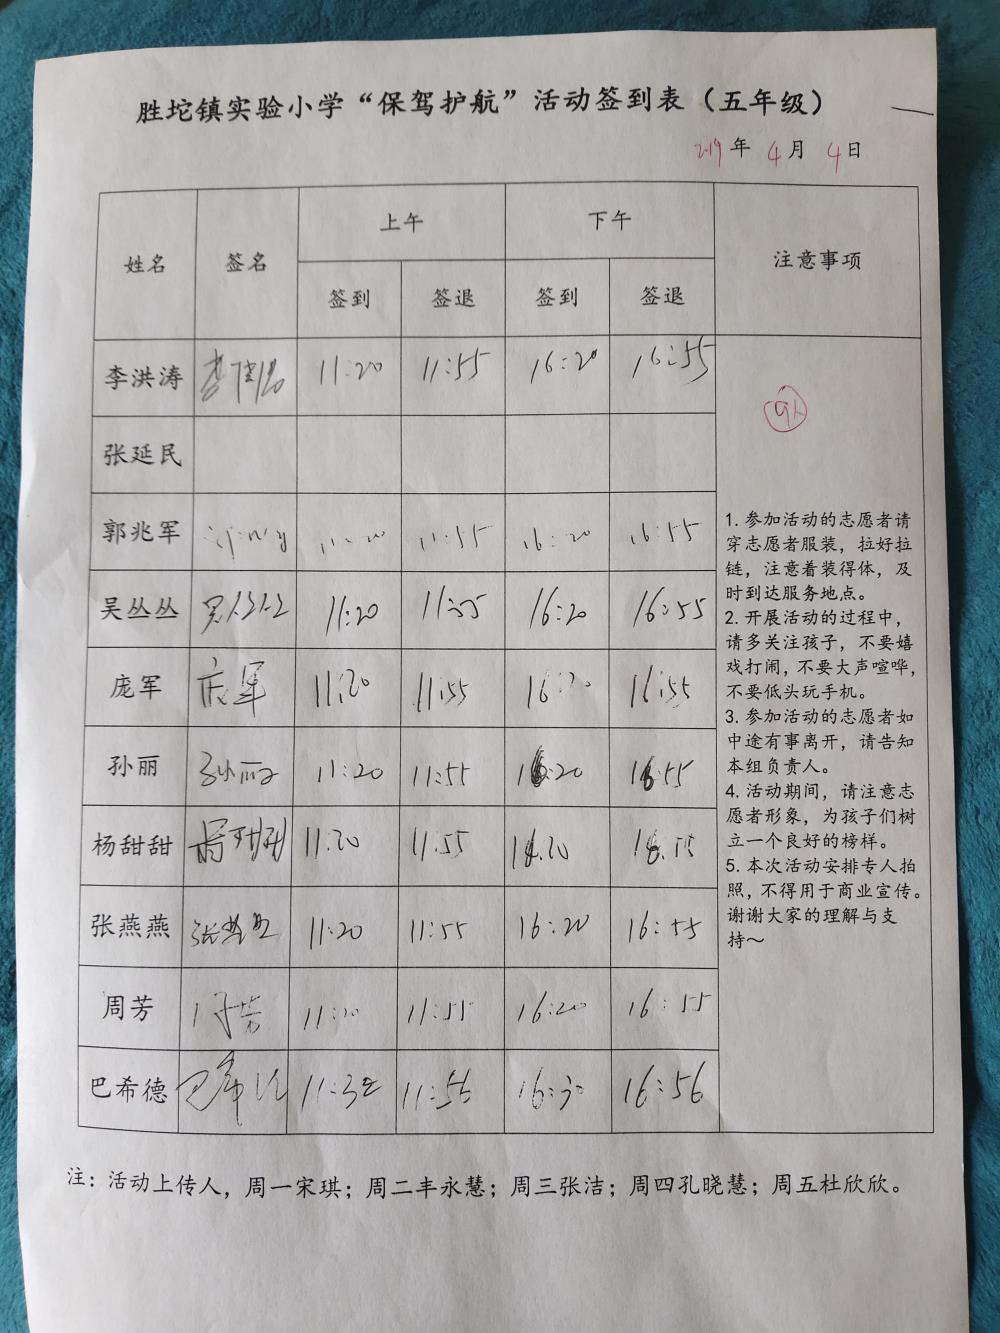 胜坨镇实验小学“保驾护航”活动签到表（五年级）
2019年 4月 4日
姓名 签名 上午 下午 注意事项
签到 签退 签到 签退
李洪涛 11:20 11:55 16:20 16:55
9人
张延民
郭兆军 11:20 11:55 16:20 16:55
吴丛丛 吴丛丛 11:20 11:55 16:20 16:55
庞军 庞军 11:20 11:55 16:20 16:55
孙丽 孙丽 11:20 11:55 16:20 16:55
杨甜甜 杨甜甜 11:20 11:55 16:20 16:55
张燕燕 张燕燕 11:20 11:55 16:20 16:55
周芳 周芳 11:20 11:55 16:20 16:55
巴希德 巴希德 11:32 11:56 16:30 16:56
1. 参加活动的志愿者请
穿志愿者服装，拉好拉
链，注意着装得体，及
时到达服务地点。
2. 开展活动的过程中，
请多关注孩子，不要嬉
戏打闹，不要大声喧哗，
不要低头玩手机。
3. 参加活动的志愿者如
中途有事离开，请告知
本组负责人。
4. 活动期间，请注意志
愿者形象，为孩子们树
立一个良好的榜样。
5. 本次活动安排专人拍
照，不得用于商业宣传。
谢谢大家的理解与支
持～
注：活动上传人，周一宋琪；周二丰永慧；周三张洁；周四孔晓慧；周五杜欣欣。